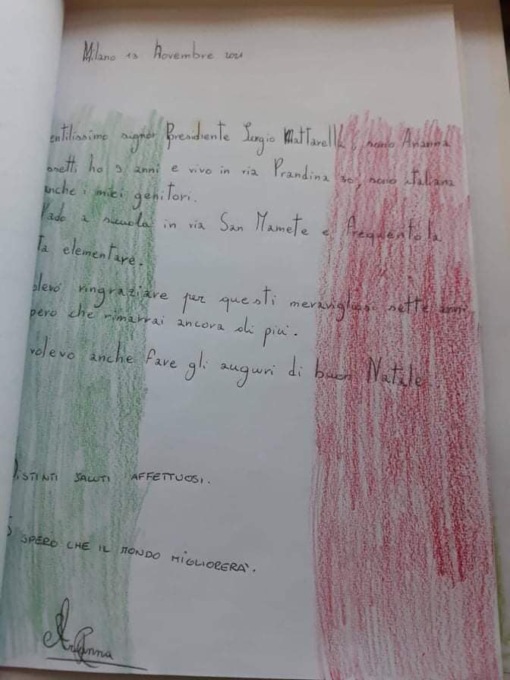 Milano 13 Novembre 2021
entilissimo signor Presidente Sergio Mattarella, sono Arianna
onetti ho 9 anni e vivo in via Prandina 30, sono italiana
anche i miei genitori.
Vado a scuola in via San Mamete e frequento la
ta elementare.
olevo ringraziare per questi meravigliosi sette anni
pero che rimarrai ancora di più.
volevo anche fare gli auguri di buon Natale
DISTINTI SALUTI AFFETTUOSI.
SPERO CHE IL MONDO MIGLIORERA'.
Arianna